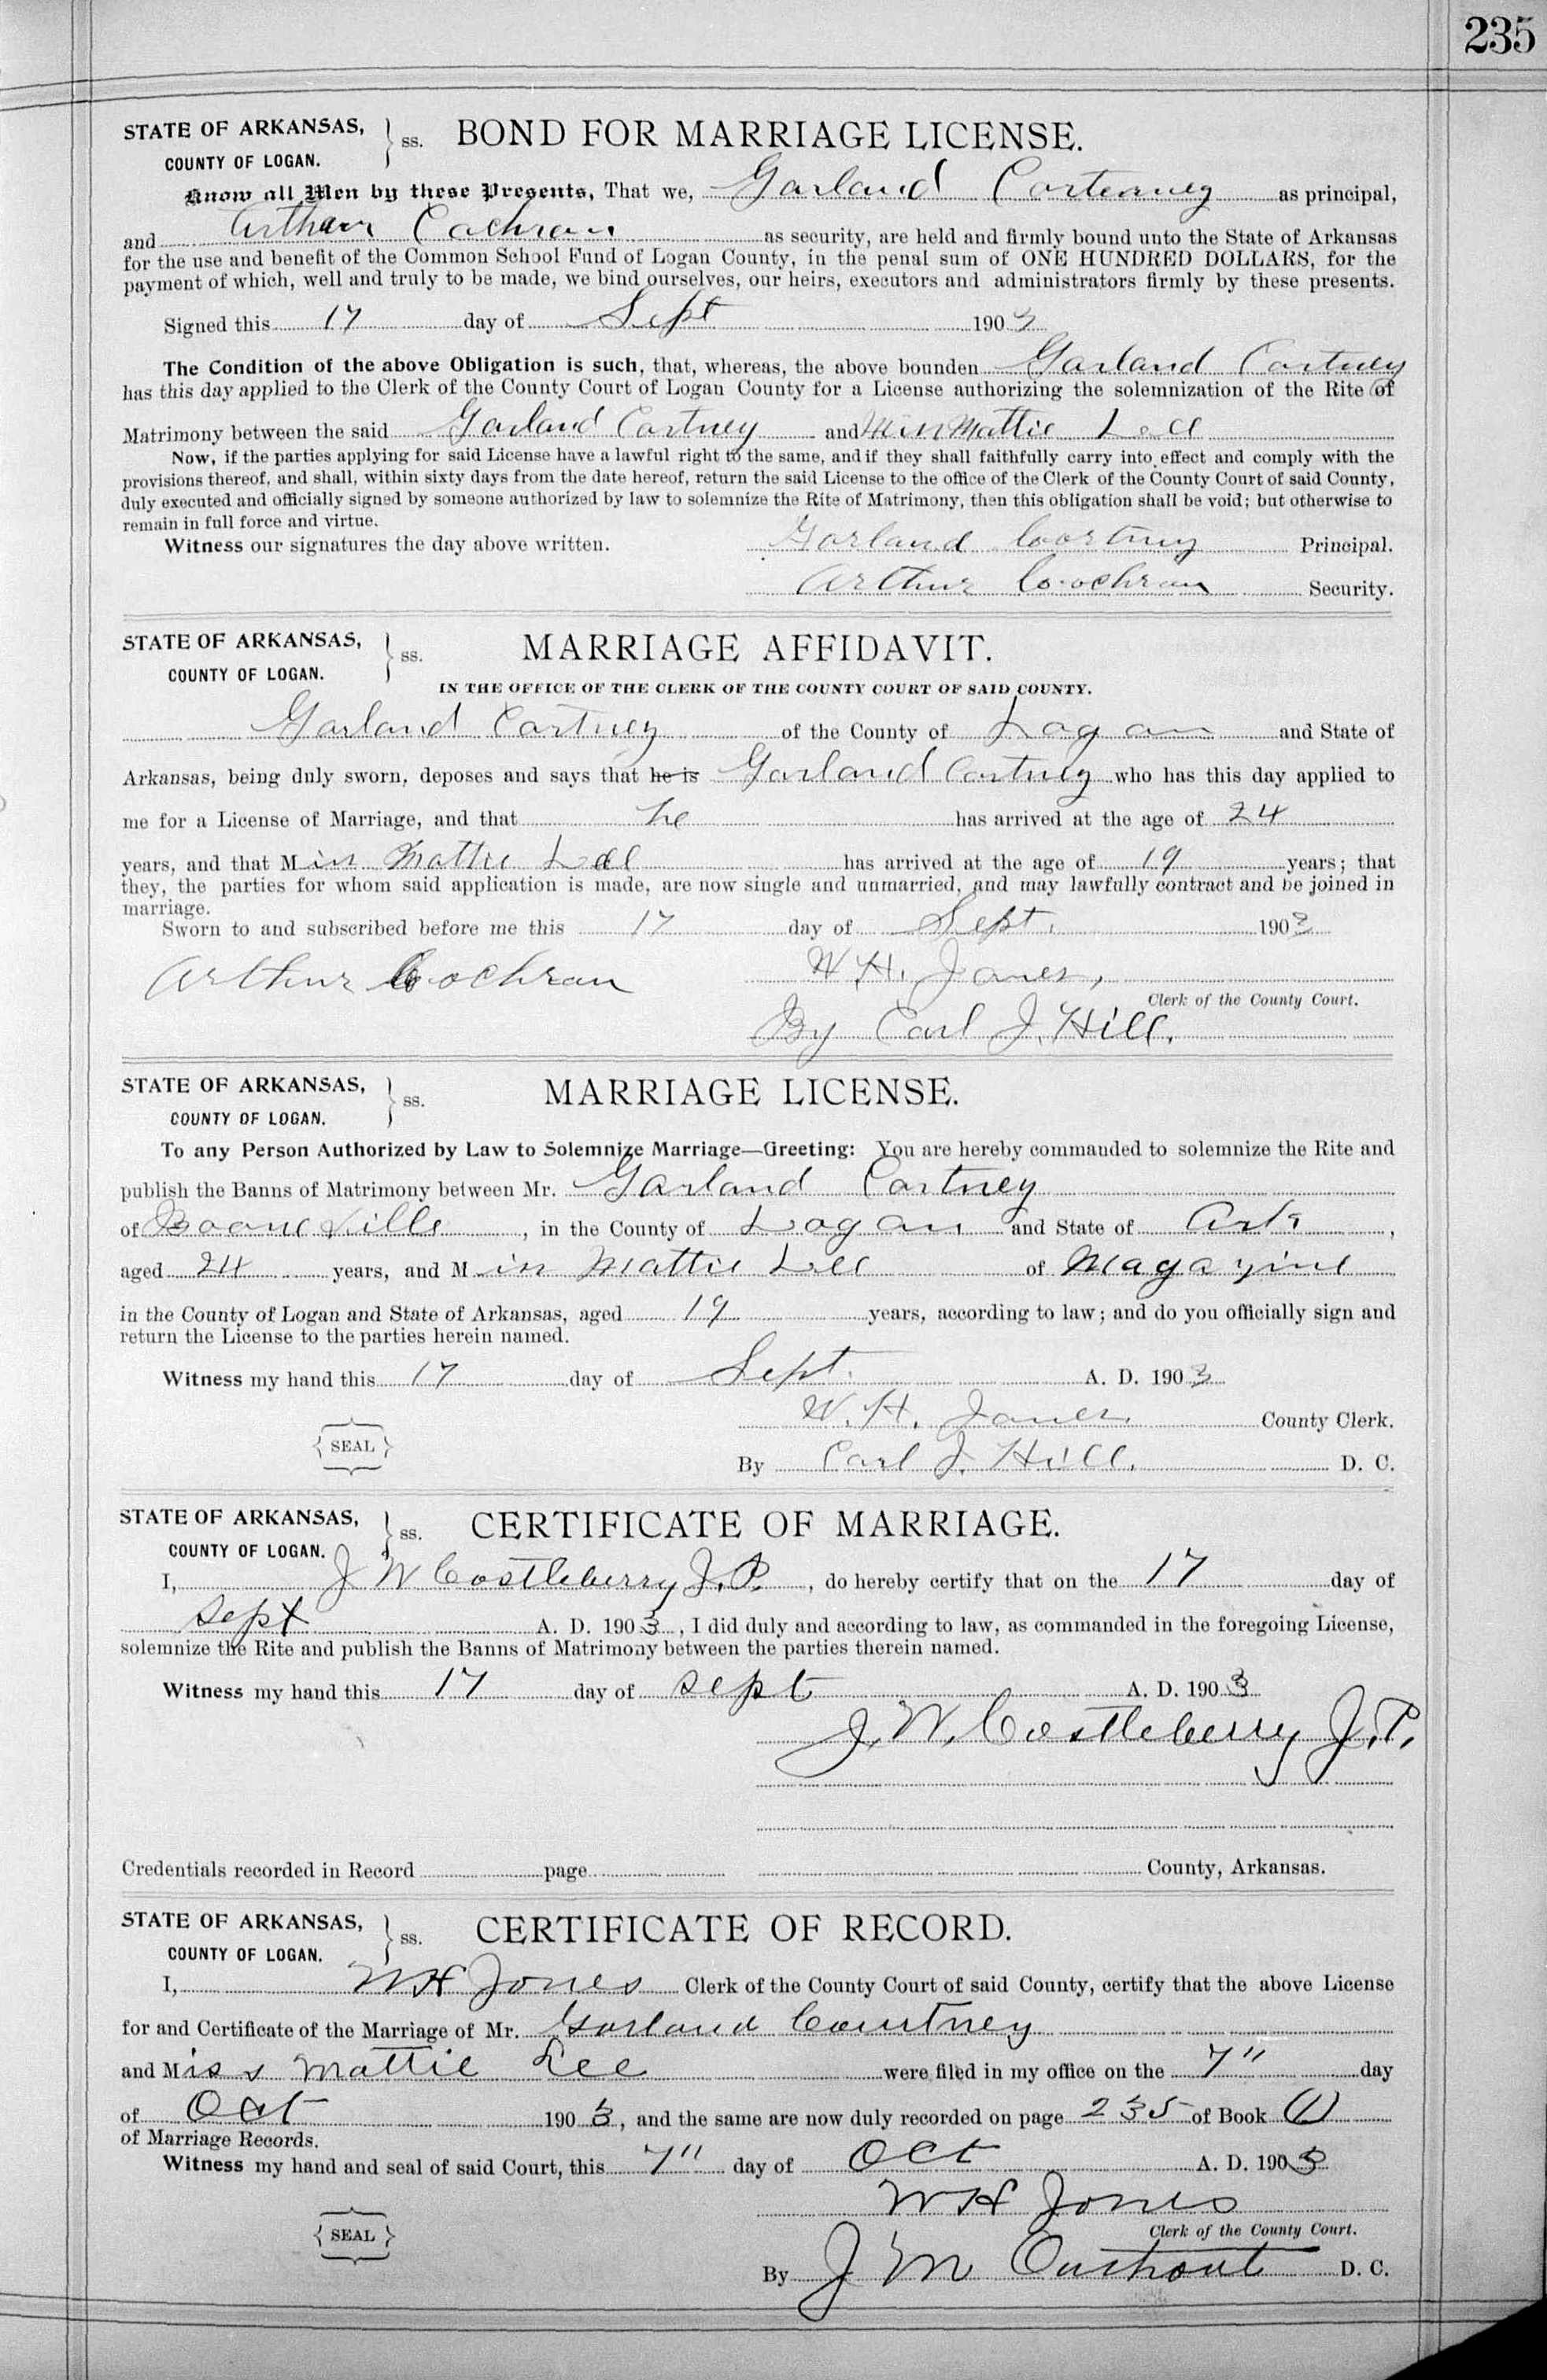 235
STATE OF ARKANSAS, } ss. BOND FOR MARRIAGE LICENSE.
COUNTY OF LOGAN.
Know all Men by these Presents, That we, Garland Corteaney as principal,
and Arthur Cochran as security, are held and firmly bound unto the State of Arkansas
for the use and benefit of the Common School Fund of Logan County, in the penal sum of ONE HUNDRED DOLLARS, for the
payment of which, well and truly to be made, we bind ourselves, our heirs, executors and administrators firmly by these presents.
Signed this 17 day of Sept 1903
The Condition of the above Obligation is such, that, whereas, the above bounden Garland Cortney
has this day applied to the Clerk of the County Court of Logan County for a License authorizing the solemnization of the Rite of
Matrimony between the said Garland Cortney and Miss Mattie Lee
Now, if the parties applying for said License have a lawful right to the same, and if they shall faithfully carry into effect and comply with the
provisions thereof, and shall, within sixty days from the date hereof, return the said License to the office of the Clerk of the County Court of said County,
duly executed and officially signed by someone authorized by law to solemnize the Rite of Matrimony, then this obligation shall be void; but otherwise to
remain in full force and virtue.
Witness our signatures the day above written. Garland Cortney Principal.
Arthur Cochran Security.
STATE OF ARKANSAS, } ss. MARRIAGE AFFIDAVIT.
COUNTY OF LOGAN.
IN THE OFFICE OF THE CLERK OF THE COUNTY COURT OF SAID COUNTY.
Garland Cortney of the County of Logan and State of
Arkansas, being duly sworn, deposes and says that he is Garland Cortney who has this day applied to
me for a License of Marriage, and that he has arrived at the age of 24
years, and that Miss Mattie Lee has arrived at the age of 19 years; that
they, the parties for whom said application is made, are now single and unmarried, and may lawfully contract and be joined in
marriage.
Sworn to and subscribed before me this 17 day of Sept. 1903
Arthur Cochran W. H. Jones,
Clerk of the County Court.
By Carl J. Hill.
STATE OF ARKANSAS, } ss. MARRIAGE LICENSE.
COUNTY OF LOGAN.
To any Person Authorized by Law to Solemnize Marriage—Greeting: You are hereby commanded to solemnize the Rite and
publish the Banns of Matrimony between Mr. Garland Cortney
of Booneville, in the County of Logan and State of Ark,
aged 24 years, and Miss Mattie Lee of Magazine
in the County of Logan and State of Arkansas, aged 19 years, according to law; and do you officially sign and
return the License to the parties herein named.
Witness my hand this 17 day of Sept. A. D. 1903
W. H. Jones County Clerk.
SEAL
By Carl J. Hill. D. C.
STATE OF ARKANSAS, } ss. CERTIFICATE OF MARRIAGE.
COUNTY OF LOGAN.
I, J W Castleberry J. P., do hereby certify that on the 17 day of
Sept A. D. 1903, I did duly and according to law, as commanded in the foregoing License,
solemnize the Rite and publish the Banns of Matrimony between the parties therein named.
Witness my hand this 17 day of Sept A. D. 1903
J. W. Castleberry J. P.
Credentials recorded in Record page County, Arkansas.
STATE OF ARKANSAS, } ss. CERTIFICATE OF RECORD.
COUNTY OF LOGAN.
I, W H Jones Clerk of the County Court of said County, certify that the above License
for and Certificate of the Marriage of Mr. Garland Courtney
and Miss Mattie Lee were filed in my office on the 7" day
of Oct 1903, and the same are now duly recorded on page 235 of Book
of Marriage Records.
Witness my hand and seal of said Court, this 7" day of Oct A. D. 1903
W H Jones
Clerk of the County Court.
SEAL
By J M D. C.